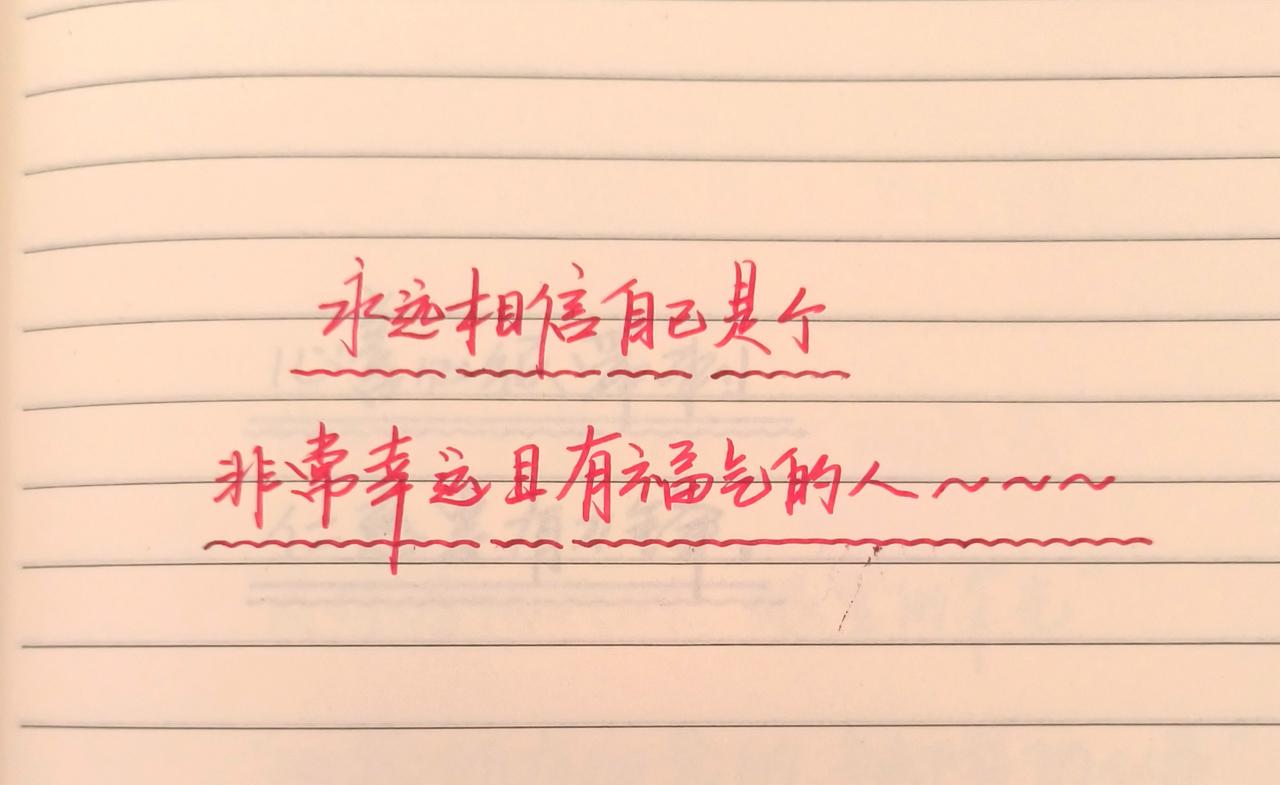 永远相信自己是个
非常幸运且有福气的人～～～